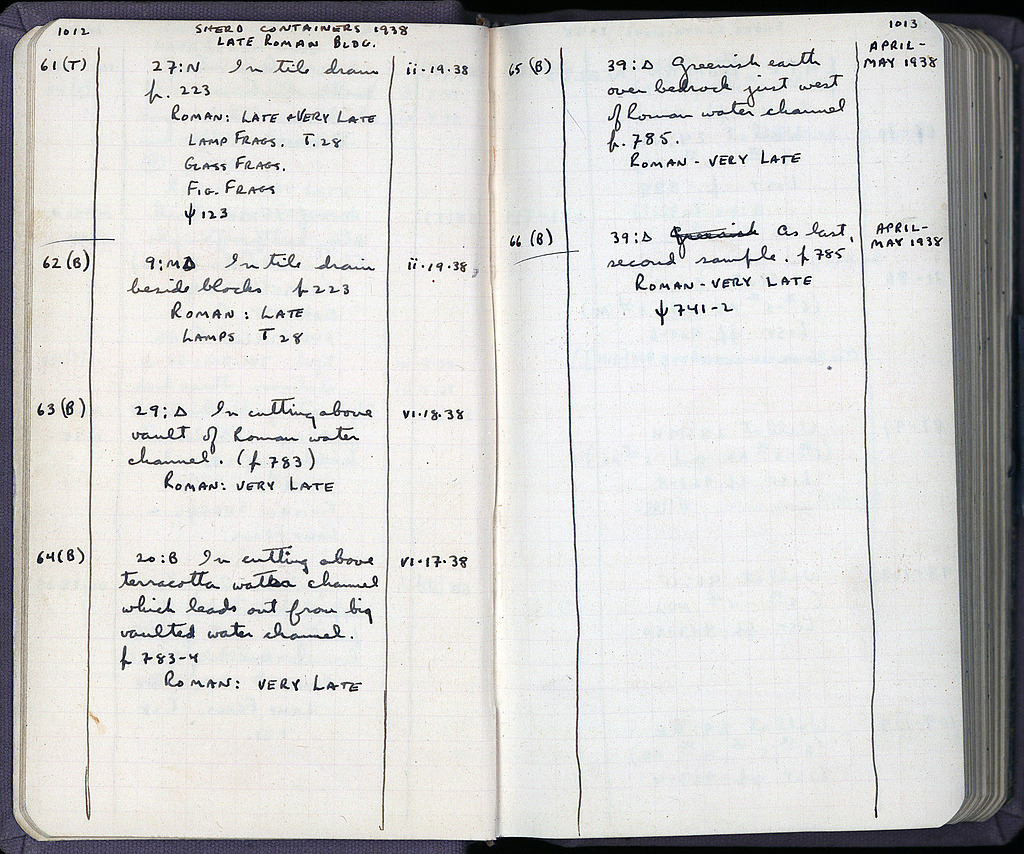 1012
SHERD CONTAINERS 1938
LATE ROMAN BLDG.
61 (T) 27:N In tile drain ii-19-38
p. 223
ROMAN: LATE + VERY LATE
LAMP FRAGS. T.28
GLASS FRAGS.
FIG. FRAGS
ψ 123
62 (B) 9:MΔ In tile drain ii-19-38
beside blocks p 223
ROMAN: LATE
LAMPS T 28
63 (B) 29:Δ In cutting above VI-18-38
vault of Roman water
channel. (p 783)
ROMAN: VERY LATE
64 (B) 20:B In cutting above VI-17-38
terracotta water channel
which leads out from big
vaulted water channel.
p 783-4
ROMAN: VERY LATE
1013
65 (B) 39:Δ Greenish earth APRIL-
over bedrock just west MAY 1938
of Roman water channel
p. 785.
ROMAN - VERY LATE
66 (B) 39:Δ Greenish As last, APRIL-
second sample. p 785 MAY 1938
ROMAN - VERY LATE
ψ 741-2